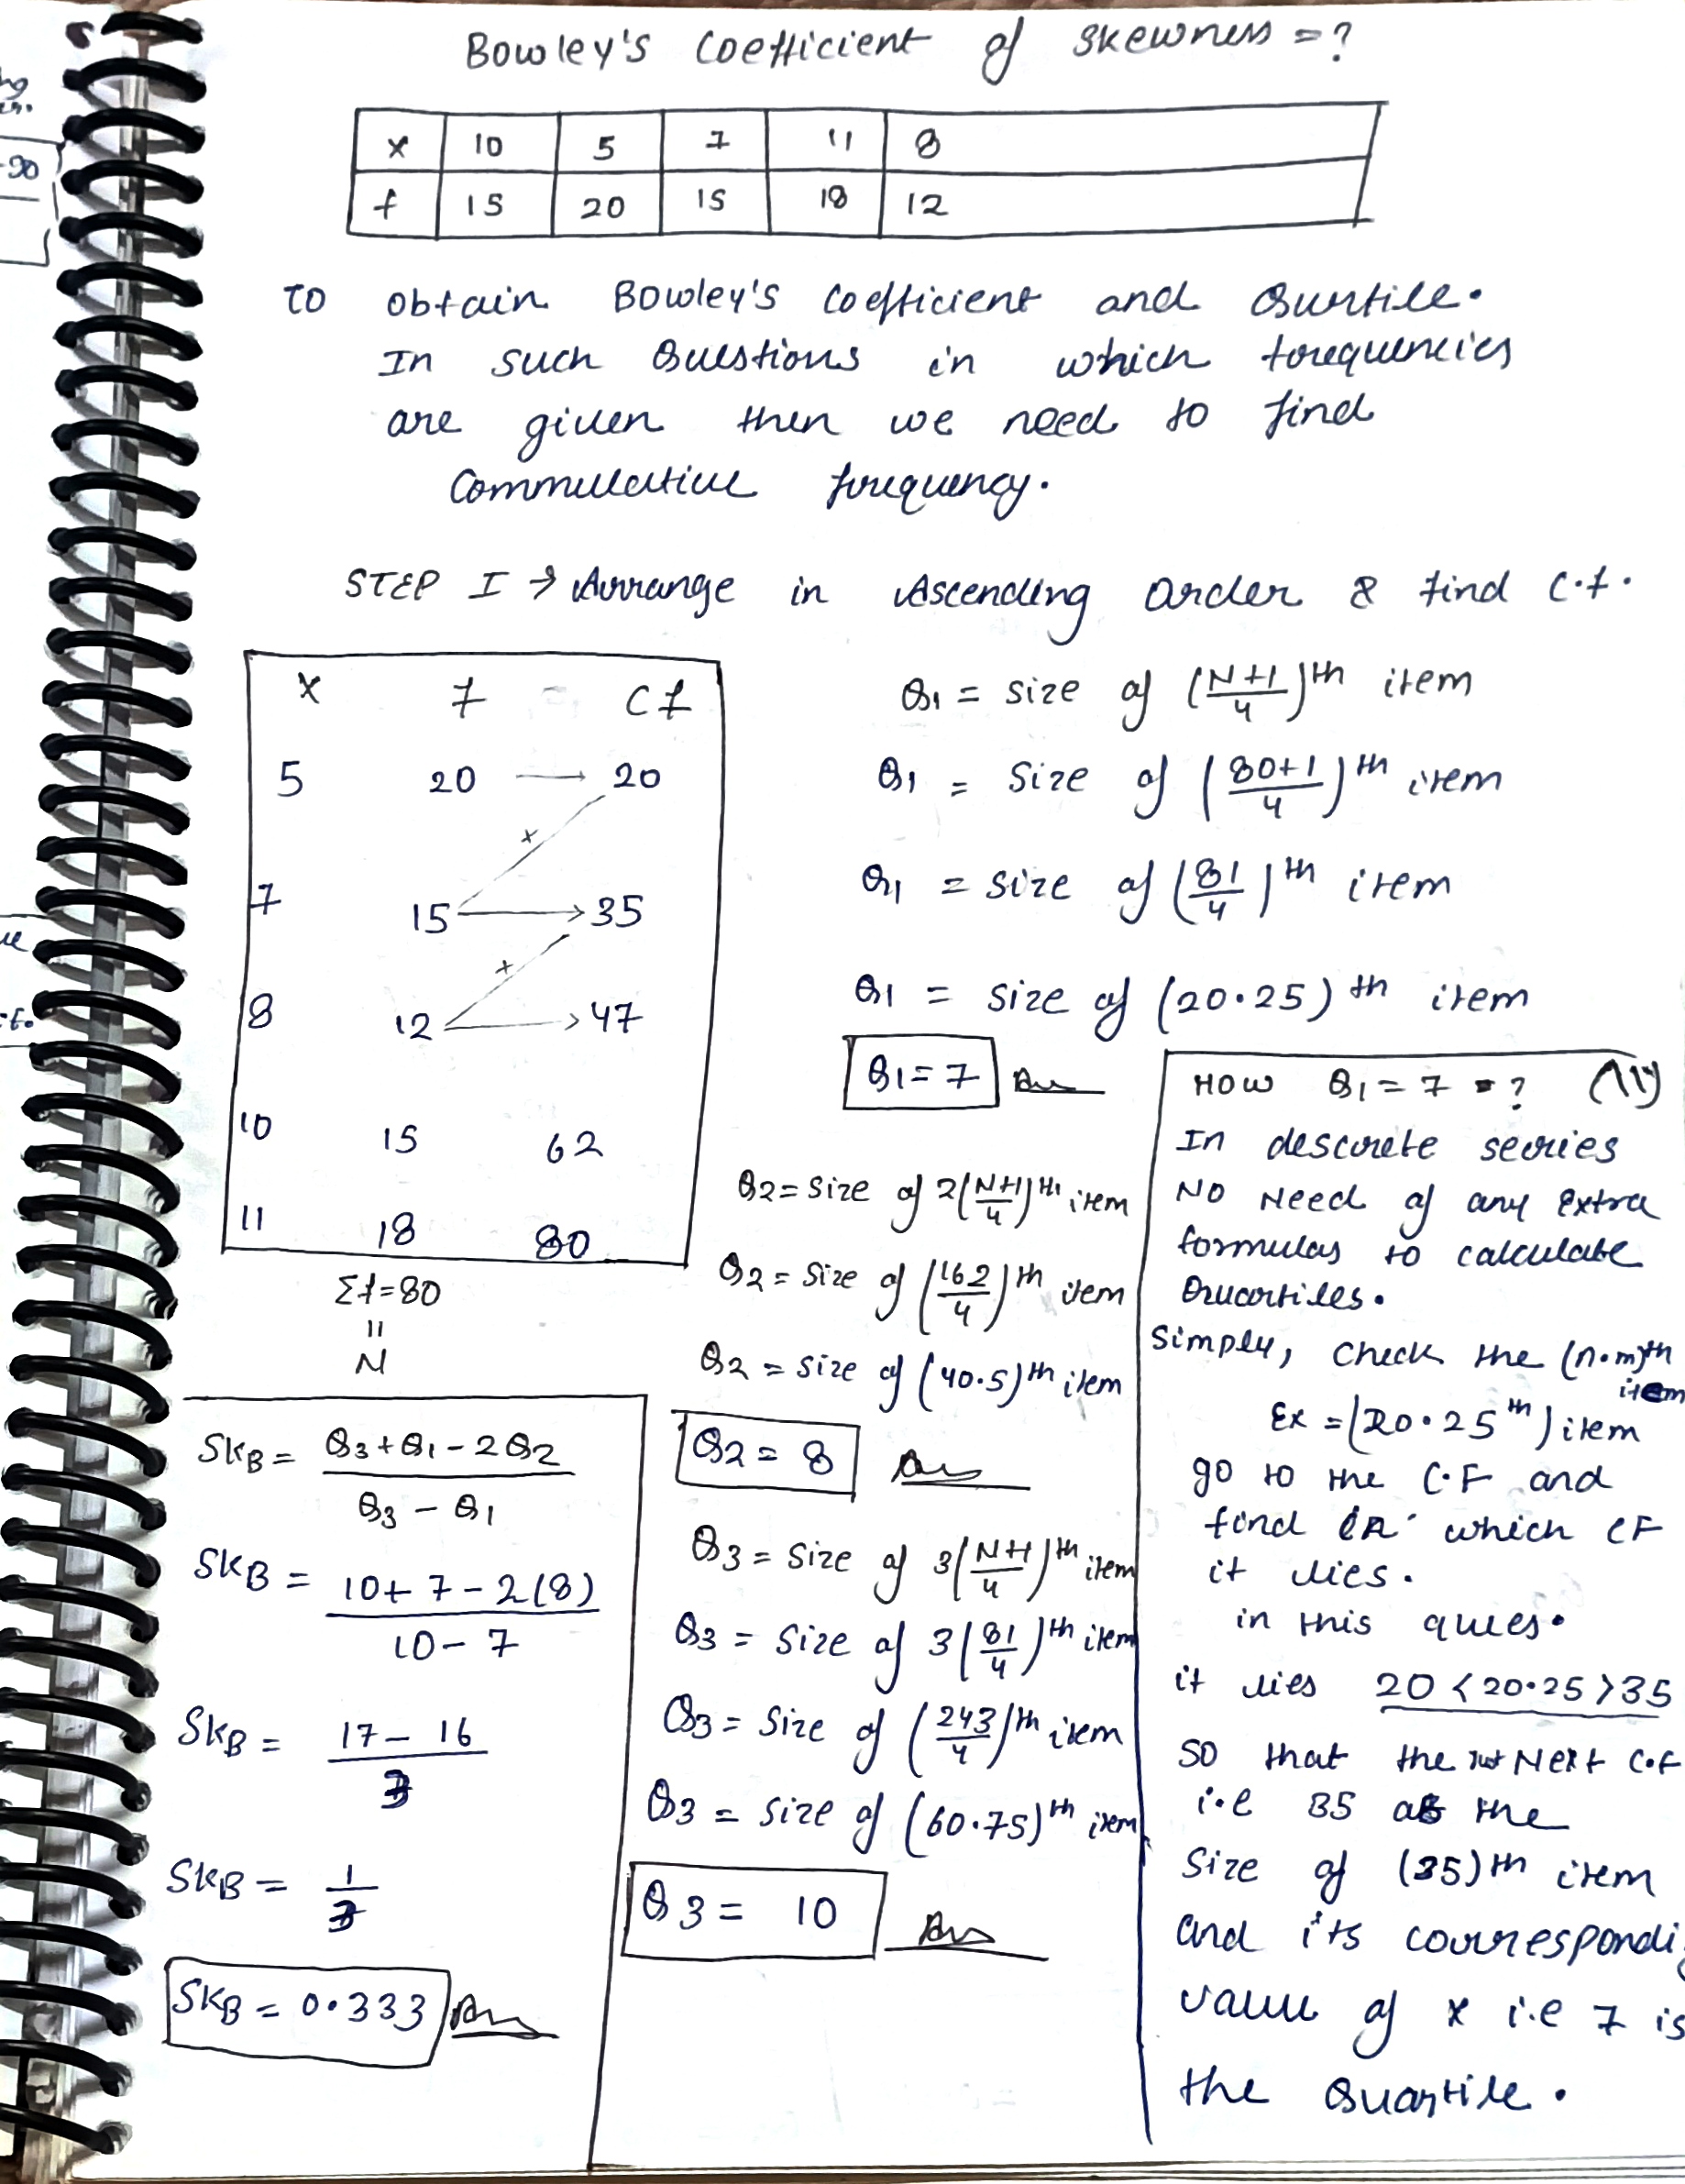 Bowley's Coefficient of skewness = ?
x 10 5 7 11 8
f 15 20 15 18 12
To obtain Bowley's coefficient and Quartile.
In such Questions in which frequencies
are given then we need to find
Commulative frequency.
STEP I → Arrange in Ascending Order & find C.f.
x f Cf
5 20 → 20
7 15 → 35
8 12 → 47
10 15 62
11 18 80
Σf = 80
=
N
Q1 = size of (N+1/4)th item
Q1 = Size of (80+1/4)th item
Q1 = size of (81/4)th item
Q1 = size of (20.25)th item
Q1 = 7 Ans
Q2 = size of 2(N+1/4)th item
Q2 = size of (162/4)th item
Q2 = size of (40.5)th item
Q2 = 8 Ans
Q3 = size of 3(N+1/4)th item
Q3 = size of 3(81/4)th item
Q3 = size of (243/4)th item
Q3 = size of (60.75)th item
Q3 = 10 Ans
SKB = Q3 + Q1 - 2Q2 / Q3 - Q1
SKB = 10 + 7 - 2(8) / 10 - 7
SKB = 17 - 16 / 3
SKB = 1/3
SKB = 0.333 Ans
HOW Q1 = 7 = ?
In descrete series
NO Need of any extra
formulas to calculate
Quartiles.
Simply, check the (n.m)th
item
Ex = (20.25th) item
go to the C.F and
find in which CF
it lies.
in this ques.
it lies 20 < 20.25 > 35
SO that the Next C.F
i.e 35 as the
Size of (35)th item
and its correspondi
value of x i.e 7 is
the Quartile.